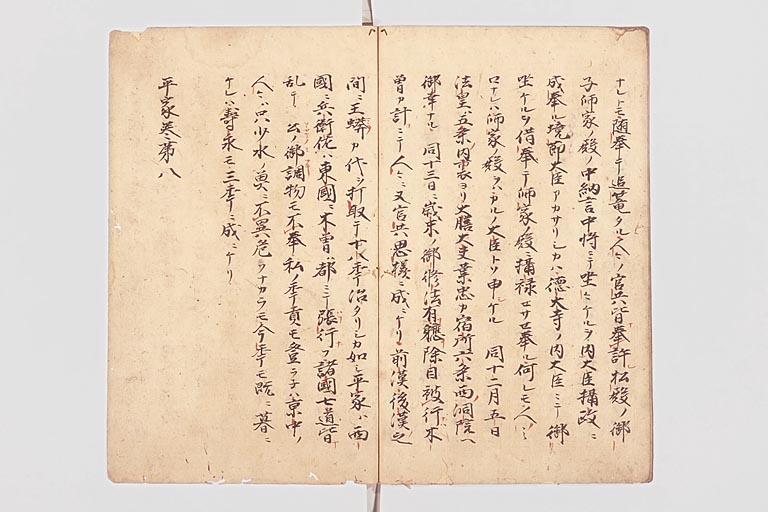 ナレトモ随奉テ追籠タル人々ノ官共皆奉許松殿ノ御
子師家ノ殿ノ中納言中将ニテ坐ケルヲ内大臣摂政ニ
成奉ル境節大臣アカサリシカハ徳大寺ノ内大臣ニテ御
坐ケルヲ借奉テ師家ノ殿ニ摂禄セサセ奉ル何レモ人々ニ
ロナレハ師家ノ殿ヲハカルノ大臣トソ申ケル 同十二月五日
法皇五条内裏ヨリ大膳大夫業忠カ宿所六条西洞院ヘ
御幸ナル 同十三日ニ歳末ノ御修法有軈除目被行木
曽カ計ニテ人々ニ又官共思様ニ成ニケリ前漢後漢之
間ニ王蟒カ代ヲ打取テ十八季治タリシカ如シ平家ハ西
國ニ兵衛佐ハ東國ニ木曽ハ都ニテ張行フ諸國七道皆
乱テ 公ノ御調物モ不奉私ノ季貢モ登ラネハ京中ノ
人々ハ只少水ノ魚ニ不異危ツナカラモ今季モ既ニ暮ニ
ケレハ壽永モ三季ニ成ニケリ
平家巻第八